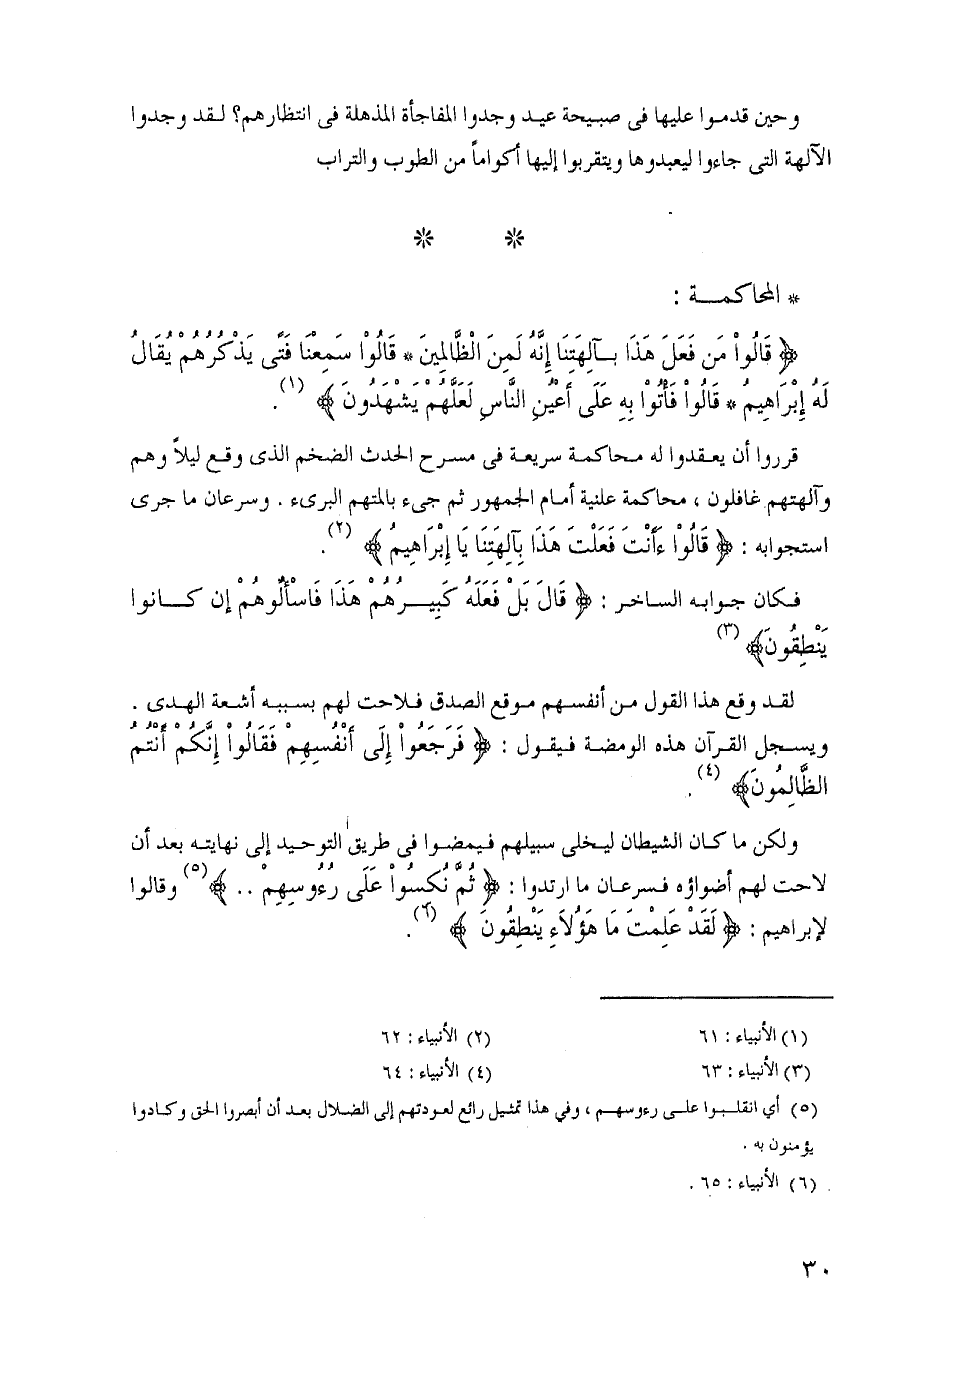 وحين قدموا عليها فى صبيحة عيد وجدوا المفاجأة المذهلة فى انتظارهم؟ لقد وجدوا
الآلهة التى جاءوا ليعبدوها ويتقربوا إليها أكواماً من الطوب والتراب
* *
* المحاكمة :
﴿ قَالُواْ مَن فَعَلَ هَذَا بِآلِهَتِنَا إِنَّهُ لَمِنَ الْظَّالِمِينَ * قَالُوْا سَمِعْنَا فَتًى يَذْكُرُهُمْ يُقَالُ
لَهُ إِبْرَاهِيمُ * قَالُوْا فَأْتُوْا بِهِ عَلَى أَعْيُنِ النَّاسِ لَعَلَّهُمْ يَشْهَدُونَ ﴾ (١) .
قرروا أن يعقدوا له محاكمة سريعة فى مسرح الحدث الضخم الذى وقع ليلاً وهم
وآلهتهم غافلون ، محاكمة علنية أمام الجمهور ثم جىء بالمتهم البرىء . وسرعان ما جرى
استجوابه : ﴿ قَالُوْا ءَأَنْتَ فَعَلْتَ هَذَا بِآلِهَتِنَا يَا إِبْرَاهِيمُ ﴾ (٢) .
فكان جوابه الساخر : ﴿ قَالَ بَلْ فَعَلَهُ كَبِيرُهُمْ هَذَا فَاسْأَلُوهُمْ إِن كَانُوا
يَنْطِقُونَ﴾ (٣)
لقد وقع هذا القول من أنفسهم موقع الصدق فلاحت لهم بسببه أشعة الهدى .
ويسجل القرآن هذه الومضة فيقول : ﴿ فَرَجَعُواْ إِلَى أَنْفُسِهِمْ فَقَالُواْ إِنَّكُمْ أَنْتُمُ
الظَّالِمُونَ﴾ (٤) .
ولكن ما كان الشيطان ليخلى سبيلهم فيمضوا فى طريق التوحيد إلى نهايته بعد أن
لاحت لهم أضواؤه فسرعان ما ارتدوا : ﴿ ثُمَّ نُكِسُواْ عَلَى رُءُوسِهِمْ .. ﴾(٥) وقالوا
لإبراهيم : ﴿ لَقَدْ عَلِمْتَ مَا هَؤُلاَءِ يَنْطِقُونَ ﴾ (٦) .
(١) الأنبياء : ٦١ (٢) الأنبياء : ٦٢
(٣) الأنبياء : ٦٣ (٤) الأنبياء : ٦٤
(٥) أي انقلبوا على رءوسهم ، وفي هذا تمثيل رائع لعودتهم إلى الضلال بعد أن أبصروا الحق وكادوا
يؤمنون به .
(٦) الأنبياء : ٦٥ .
٣٠